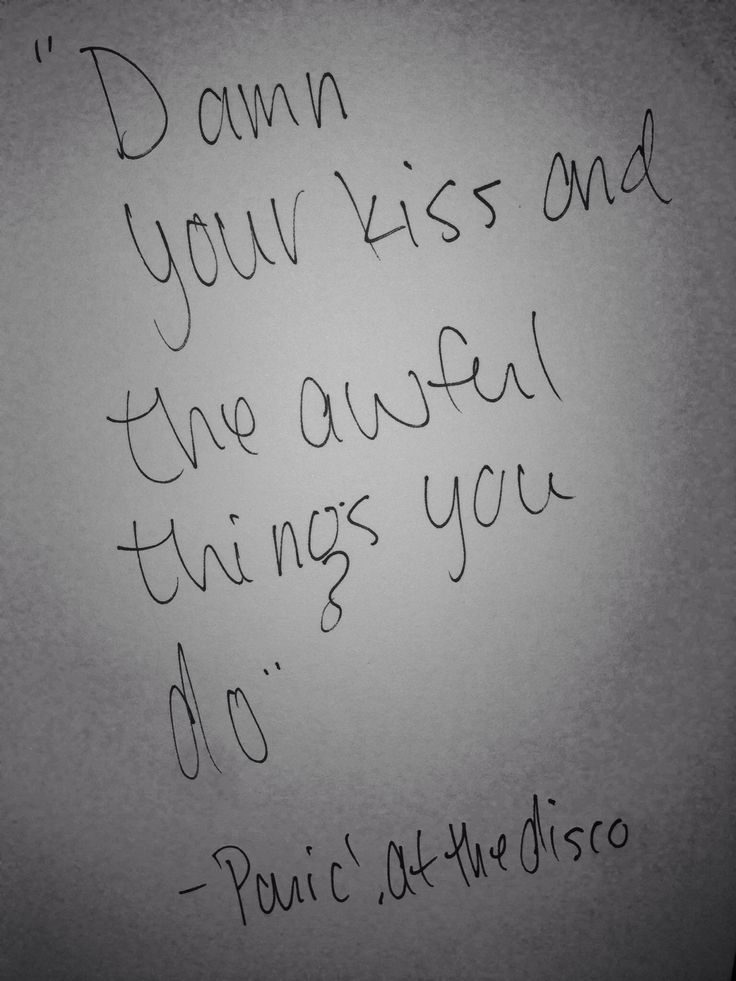 "Damn
your kiss and
the awful
things you
do"
-Panic! at the disco